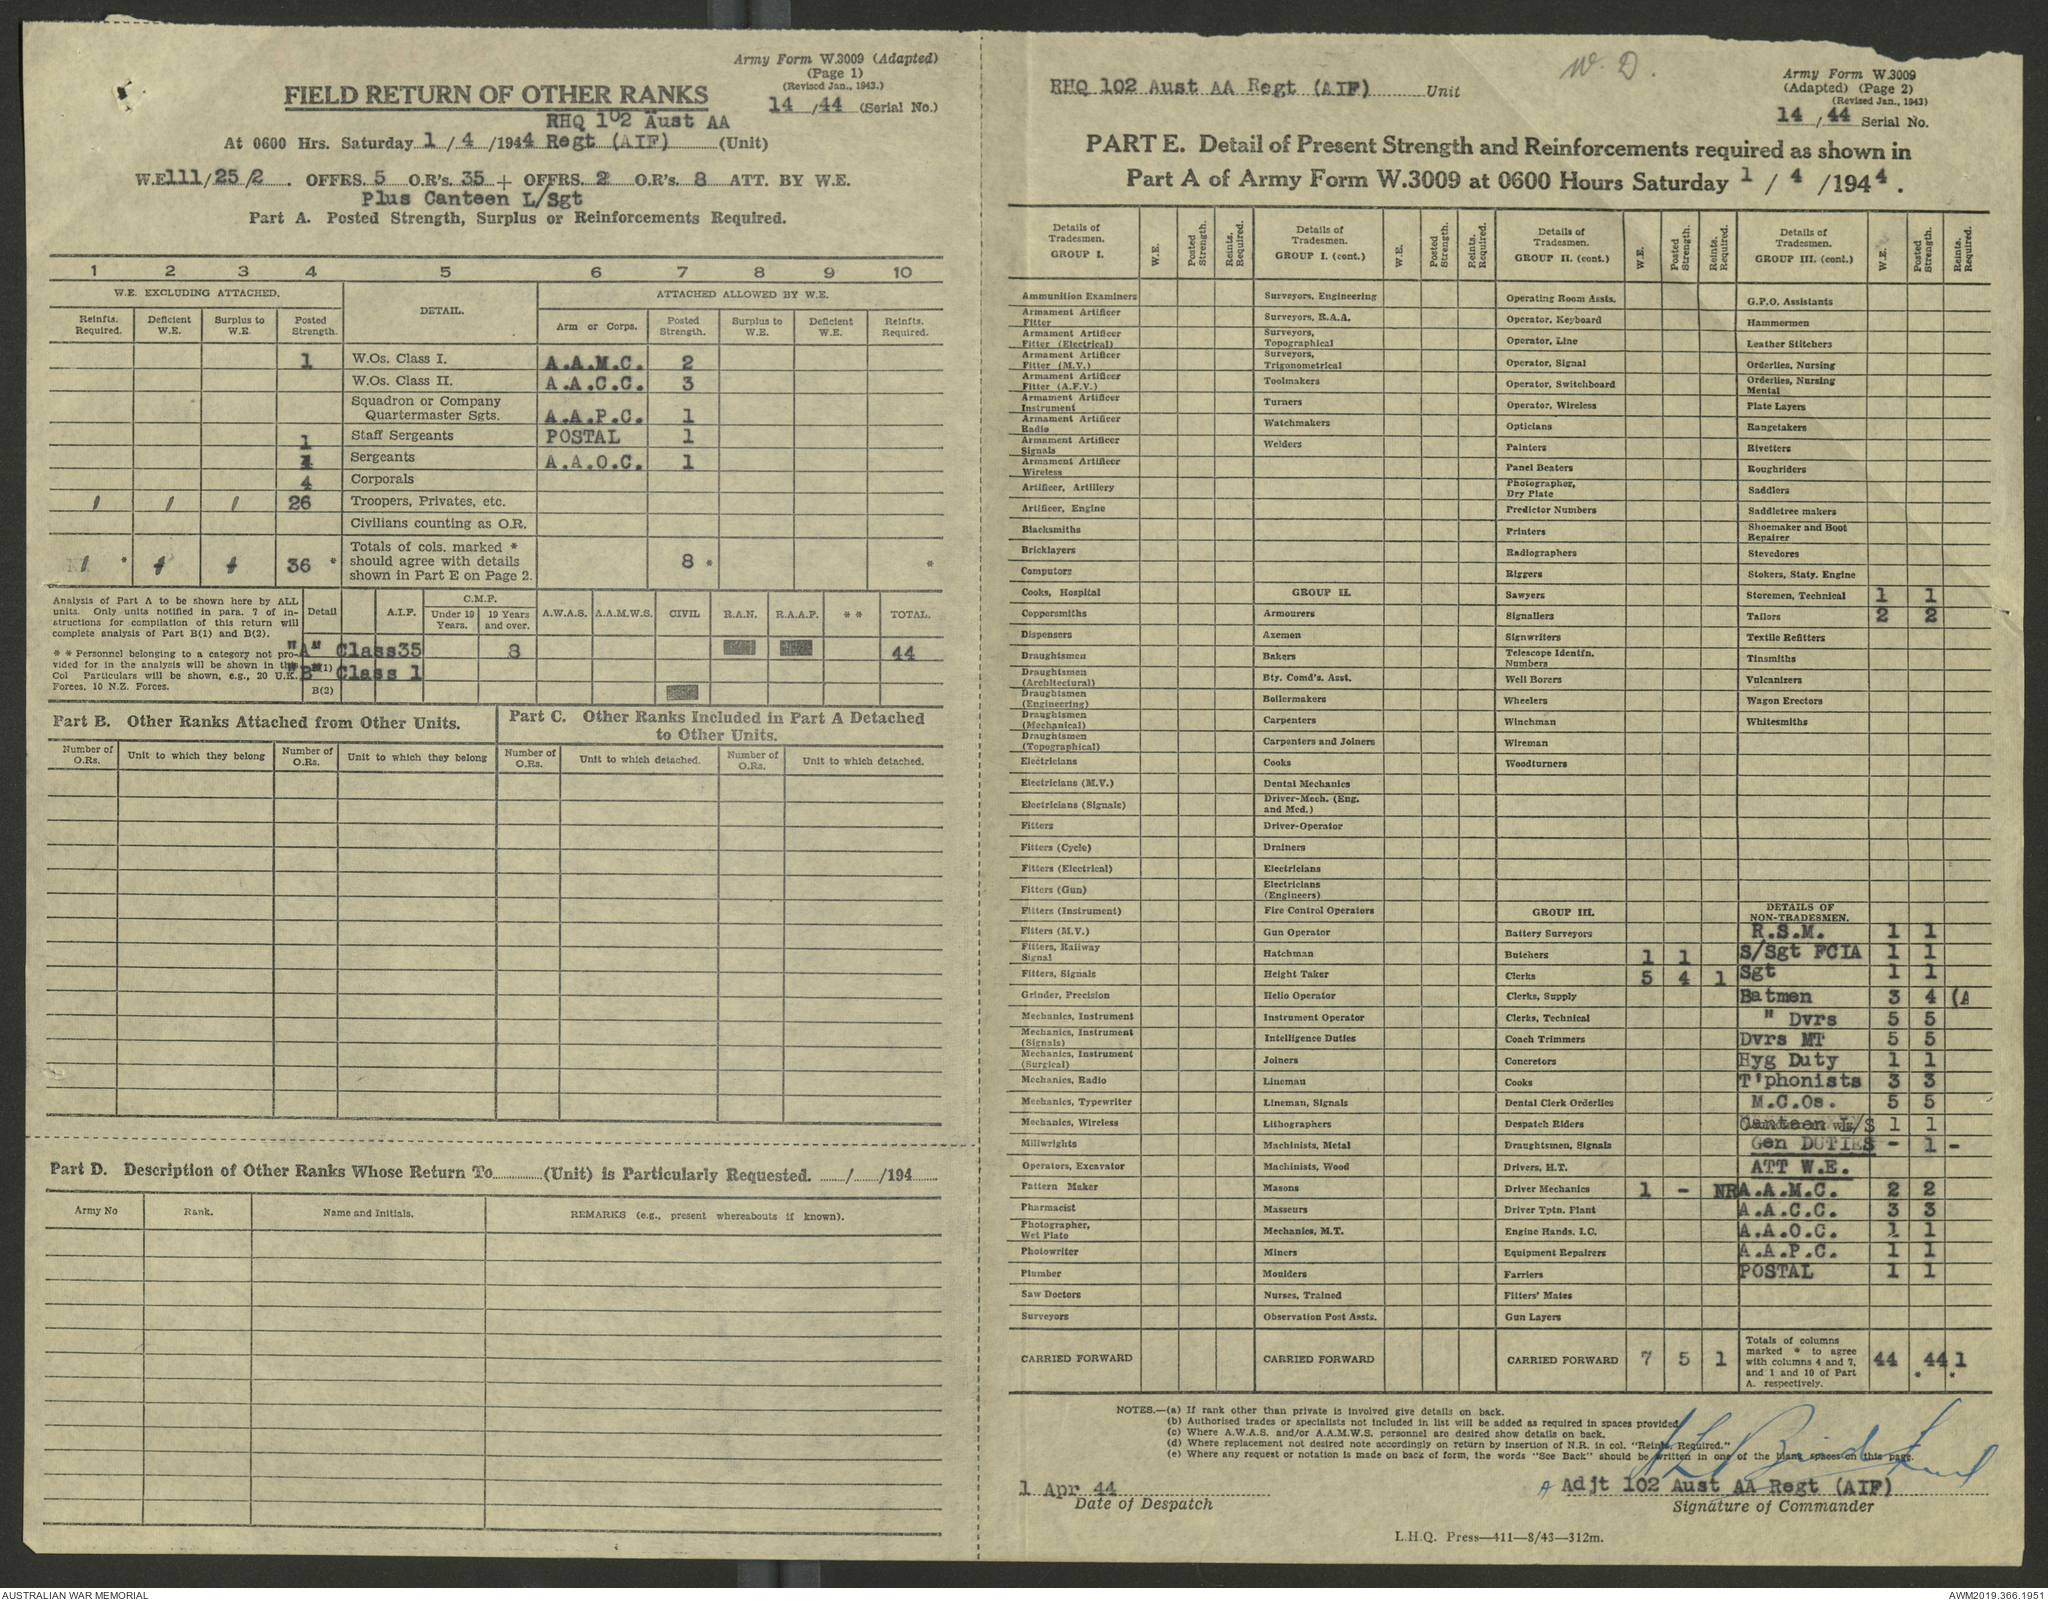 Army Form W.3009 (Adapted)
(Page 1)
(Revised Jan., 1943.)
14 / 44 (Serial No.)
FIELD RETURN OF OTHER RANKS
RHQ 102 Aust AA
At 0600 Hrs. Saturday 1 / 4 / 1944 Regt (AIF) (Unit)
W.E. 111/25/2. OFFRS. 5 O.R's. 35 + OFFRS. 2 O.R's. 8 ATT. BY W.E.
Plus Canteen L/Sgt
Part A. Posted Strength, Surplus or Reinforcements Required.
1 2 3 4 5 6 7 8 9 10
W.E. EXCLUDING ATTACHED. DETAIL. ATTACHED ALLOWED BY W.E.
Reinfts. Required. Deficient W.E. Surplus to W.E. Posted Strength. Arm or Corps. Posted Strength. Surplus to W.E. Deficient W.E. Reinfts. Required.
1 W.Os. Class I. A.A.M.C. 2
W.Os. Class II. A.A.C.C. 3
Squadron or Company Quartermaster Sgts. A.A.P.C. 1
1 Staff Sergeants POSTAL 1
Sergeants A.A.O.C. 1
4 Corporals
1 1 1 26 Troopers, Privates, etc.
Civilians counting as O.R.
1 * 36 * Totals of cols. marked * should agree with details shown in Part E on Page 2. 8 * *
Analysis of Part A to be shown here by ALL units. Only units notified in para. 7 of instructions for compilation of this return will complete analysis of Part B(1) and B(2).
* * Personnel belonging to a category not provided for in the analysis will be shown in this Col Particulars will be shown, e.g., 20 U.K. Forces, 10 N.Z. Forces.
Detail A.I.F. C.M.F. Under 19 Years. 19 Years and over. A.W.A.S. A.A.M.W.S. CIVIL R.A.N. R.A.A.F. * * TOTAL.
"A" Class 35 8 44
"B" Class 1
B(2)
Part B. Other Ranks Attached from Other Units.
Part C. Other Ranks Included in Part A Detached to Other Units.
Number of O.Rs. Unit to which they belong Number of O.Rs. Unit to which they belong Number of O.Rs. Unit to which detached. Number of O.Rs. Unit to which detached.
Part D. Description of Other Ranks Whose Return To............(Unit) is Particularly Requested. ....../....../194......
Army No Rank. Name and Initials. REMARKS (e.g., present whereabouts if known).
W.D.
RHQ 102 Aust AA Regt (AIF) Unit
Army Form W.3009
(Adapted) (Page 2)
(Revised Jan., 1943)
14 / 44 Serial No.
PART E. Detail of Present Strength and Reinforcements required as shown in
Part A of Army Form W.3009 at 0600 Hours Saturday 1 / 4 / 1944.
Details of Tradesmen. GROUP I. W.E. Posted Strength. Reints. Required.
Ammunition Examiners
Armament Artificer Fitter
Armament Artificer Fitter (Electrical)
Armament Artificer Fitter (M.V.)
Armament Artificer Fitter (A.F.V.)
Armament Artificer Instrument
Armament Artificer Radio
Armament Artificer Signals
Armament Artificer Wireless
Artificer, Artillery
Artificer, Engine
Blacksmiths
Bricklayers
Computors
Cooks, Hospital
Coppersmiths
Dispensers
Draughtsmen
Draughtsmen (Architectural)
Draughtsmen (Engineering)
Draughtsmen (Mechanical)
Draughtsmen (Topographical)
Electricians
Electricians (M.V.)
Electricians (Signals)
Fitters
Fitters (Cycle)
Fitters (Electrical)
Fitters (Gun)
Fitters (Instrument)
Fitters (M.V.)
Fitters, Railway Signal
Fitters, Signals
Grinder, Precision
Mechanics, Instrument
Mechanics, Instrument (Signals)
Mechanics, Instrument (Surgical)
Mechanics, Radio
Mechanics, Typewriter
Mechanics, Wireless
Millwrights
Operators, Excavator
Pattern Maker
Pharmacist
Photographer, Wet Plate
Photowriter
Plumber
Saw Doctors
Surveyors
CARRIED FORWARD
Details of Tradesmen. GROUP I. (cont.) W.E. Posted Strength. Reints. Required.
Surveyors, Engineering
Surveyors, R.A.A.
Surveyors, Topographical
Surveyors, Trigonometrical
Toolmakers
Turners
Watchmakers
Welders
GROUP II.
Armourers
Axemen
Bakers
Bty. Comd's. Asst.
Boilermakers
Carpenters
Carpenters and Joiners
Cooks
Dental Mechanics
Driver-Mech. (Eng. and Med.)
Driver-Operator
Drainers
Electricians
Electricians (Engineers)
Fire Control Operators
Gun Operator
Hatchman
Height Taker
Helio Operator
Instrument Operator
Intelligence Duties
Joiners
Lineman
Lineman, Signals
Lithographers
Machinists, Metal
Machinists, Wood
Masons
Masseurs
Mechanics, M.T.
Miners
Moulders
Nurses, Trained
Observation Post Assts.
CARRIED FORWARD
Details of Tradesmen. GROUP II. (cont.) W.E. Posted Strength. Reints. Required.
Operating Room Assts.
Operator, Keyboard
Operator, Line
Operator, Signal
Operator, Switchboard
Operator, Wireless
Opticians
Painters
Panel Beaters
Photographer, Dry Plate
Predictor Numbers
Printers
Radiographers
Riggers
Sawyers
Signallers
Signwriters
Telescope Identfn. Numbers
Well Borers
Wheelers
Winchman
Wireman
Woodturners
GROUP III.
Battery Surveyors
Butchers 1 1
Clerks 5 4 1
Clerks, Supply
Clerks, Technical
Coach Trimmers
Concretors
Cooks
Dental Clerk Orderlies
Despatch Riders
Draughtsmen, Signals
Drivers, H.T.
Driver Mechanics 1 - NR
Driver Tptn. Plant
Engine Hands, I.C.
Equipment Repairers
Farriers
Fitters' Mates
Gun Layers
CARRIED FORWARD 7 5 1
Details of Tradesmen. GROUP III. (cont.) W.E. Posted Strength. Reints. Required.
G.P.O. Assistants
Hammermen
Leather Stitchers
Orderlies, Nursing
Orderlies, Nursing Mental
Plate Layers
Rangetakers
Rivetters
Roughriders
Saddlers
Saddletree makers
Shoemaker and Boot Repairer
Stevedores
Stokers, Staty. Engine
Storemen, Technical 1 1
Tailors 2 2
Textile Refitters
Tinsmiths
Vulcanizers
Wagon Erectors
Whitesmiths
DETAILS OF NON-TRADESMEN.
R.S.M. 1 1
S/Sgt FCIA 1 1
Sgt 1 1
Batmen 3 4 (A
" Dvrs 5 5
Dvrs MT 5 5
Hyg Duty 1 1
T'phonists 3 3
M.C.Os. 5 5
Canteen L/S 1 1
Gen DUTIES - 1 -
ATT W.E.
A.A.M.C. 2 2
A.A.C.C. 3 3
A.A.O.C. 1 1
A.A.P.C. 1 1
POSTAL 1 1
Totals of columns marked * to agree with columns 4 and 7, and 1 and 10 of Part A. respectively. 44 44 * 1 *
NOTES.—(a) If rank other than private is involved give details on back.
(b) Authorised trades or specialists not included in list will be added as required in spaces provided.
(c) Where A.W.A.S. and/or A.A.M.W.S. personnel are desired show details on back.
(d) Where replacement not desired note accordingly on return by insertion of N.R. in col. "Reints. Required."
(e) Where any request or notation is made on back of form, the words "See Back" should be written in one of the blank spaces on this page.
1 Apr 44
Date of Despatch
A Adjt 102 Aust AA Regt (AIF)
Signature of Commander
L.H.Q. Press—411—8/43—312m.
AUSTRALIAN WAR MEMORIAL
AWM2019.366.1951